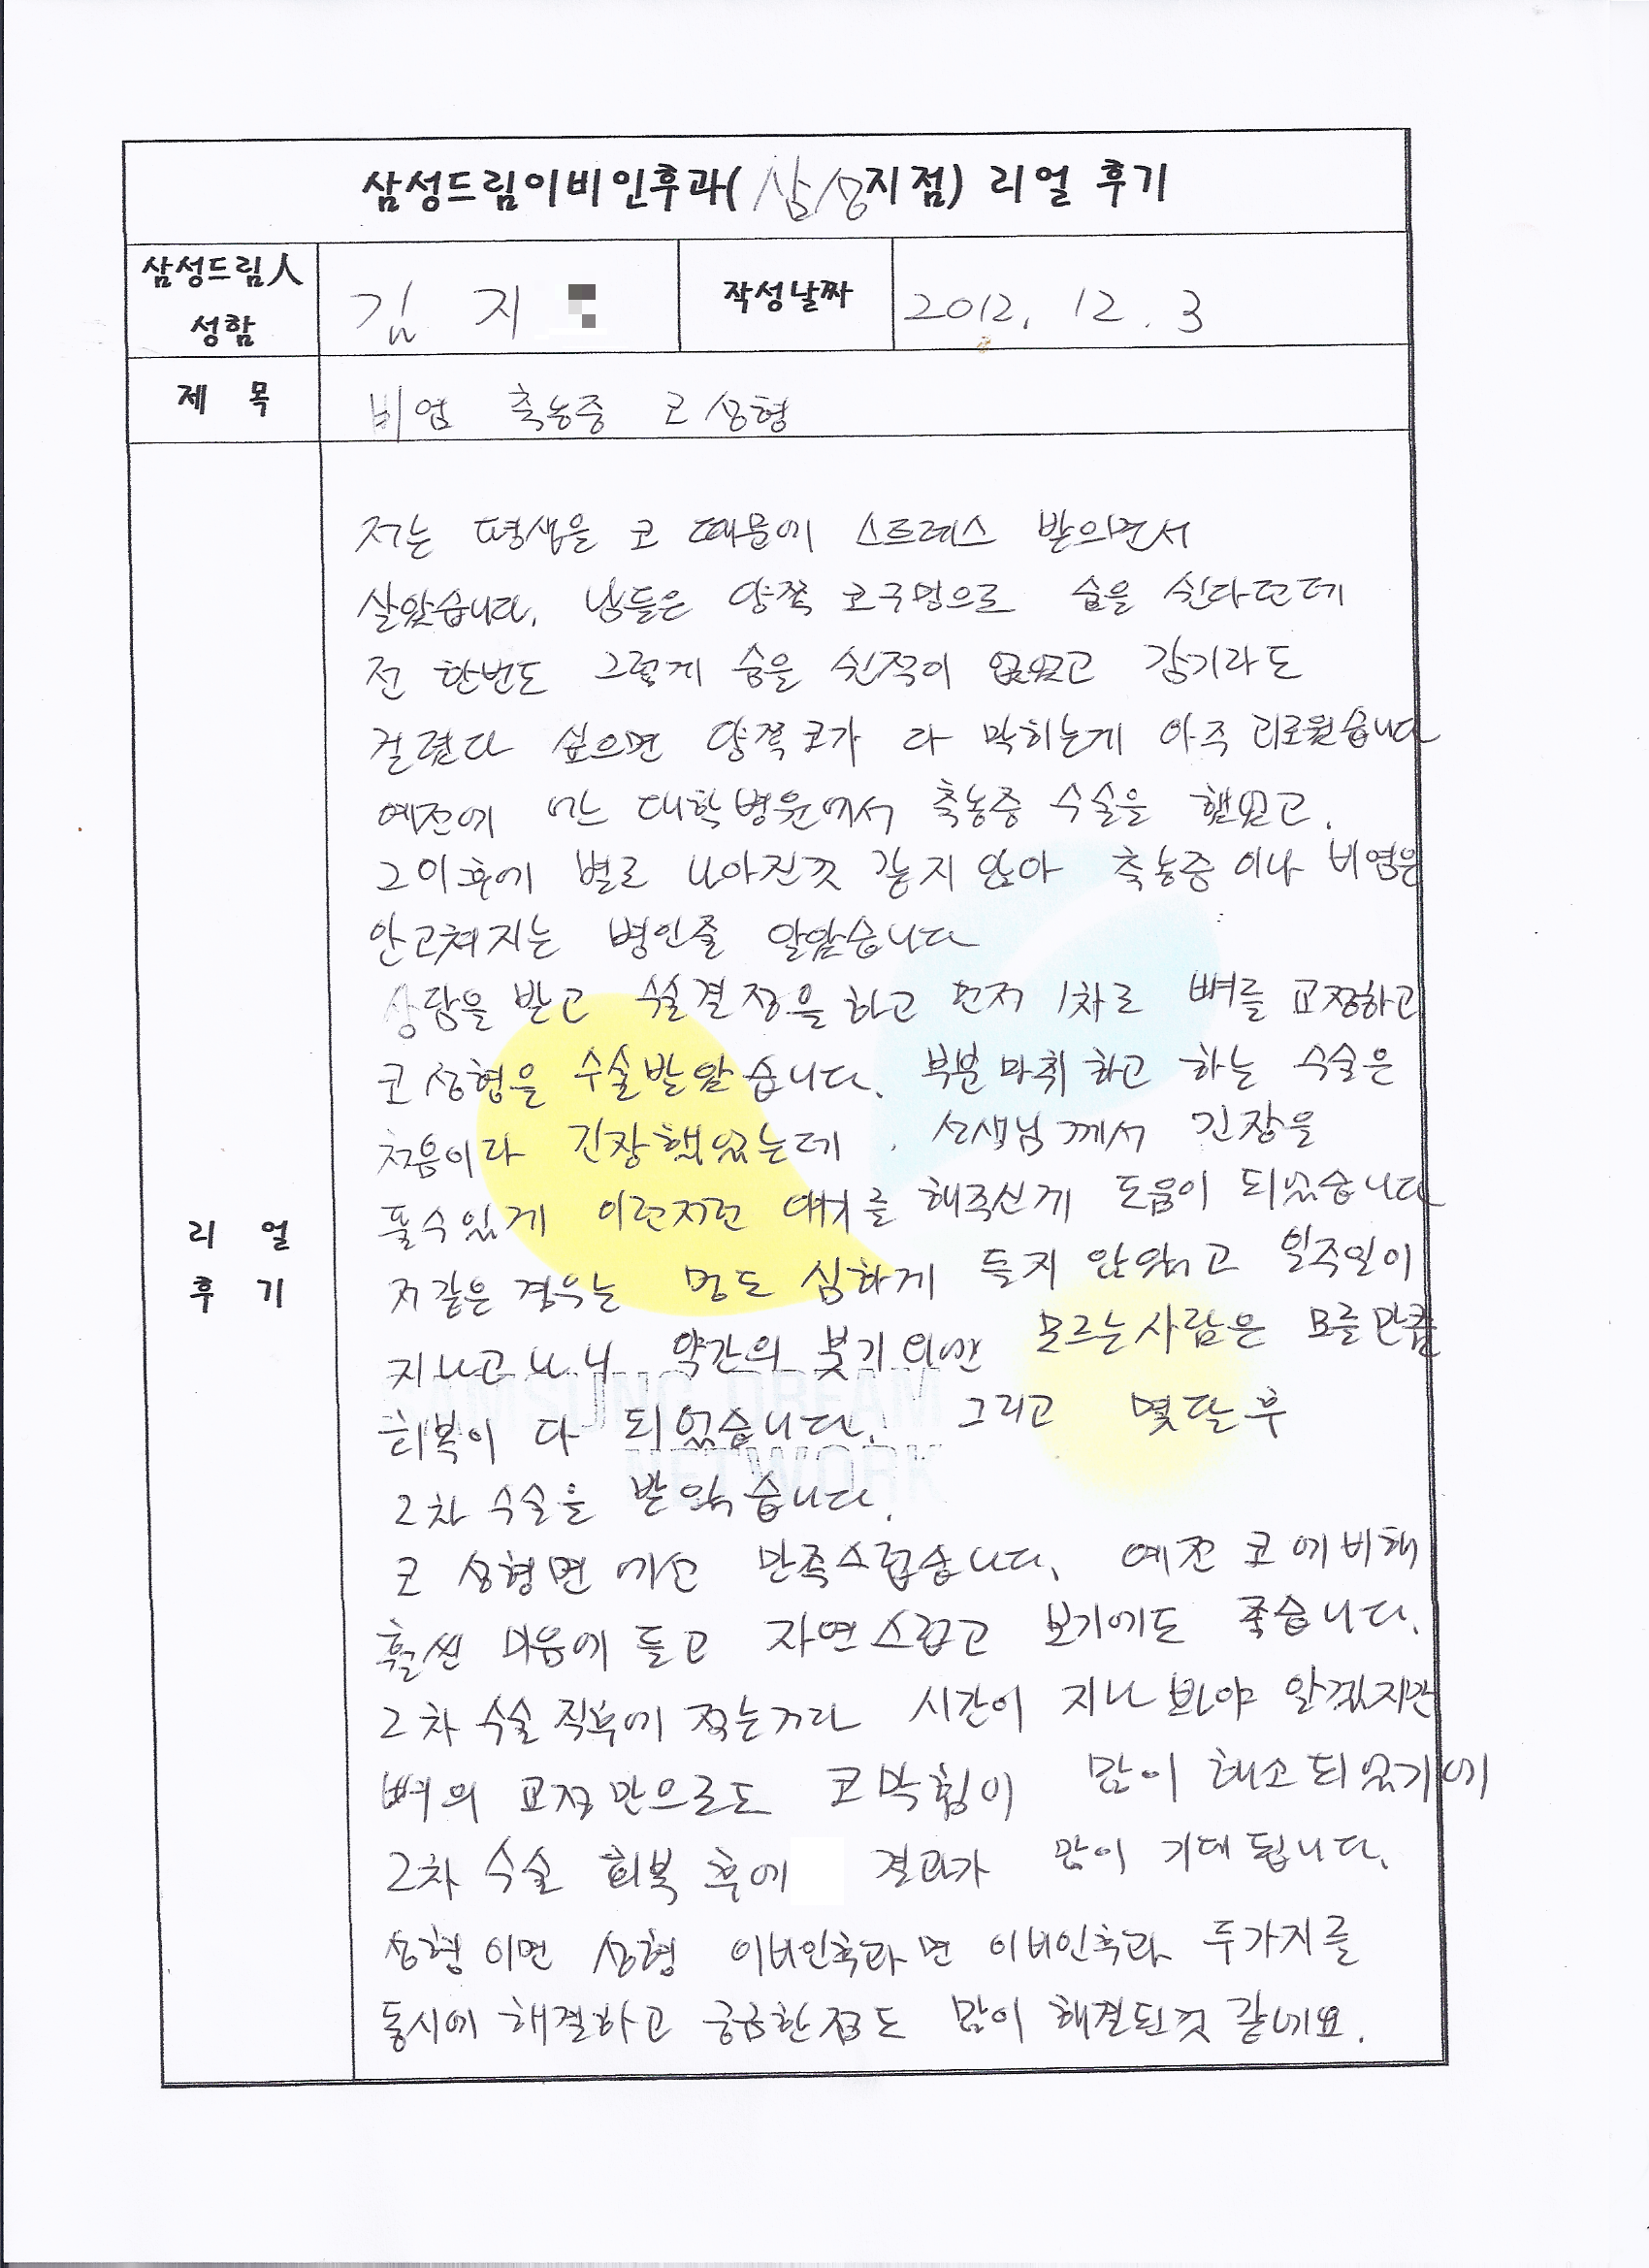 삼성드림이비인후과( 삼성지점) 리얼 후기
삼성드림人 성함
김 지
작성날짜
2012. 12. 3
제 목
비염 축농증 코 성형
리 얼 후 기
저는 평생을 코 때문에 스트레스 받으면서
살았습니다. 남들은 양쪽 코구멍으로 숨을 쉰다던데
전 한번도 그렇게 숨을 쉰적이 없었고 감기라도
걸렸다 싶으면 양쪽코가 다 막히는게 아주 괴로웠습니다
예전에 어느 대학병원에서 축농증 수술을 했었고.
그이후에 별로 나아진것 같지 않아 축농증 이나 비염은
안고쳐지는 병인줄 알았습니다
상담을 받고 수술결정을 하고 먼저 1차로 뼈를 교정하고
코 성형을 수술받았습니다. 부분마취 하고 하는 수술은
처음이라 긴장했었는데. 선생님께서 긴장을
풀수있게 이런저런 얘기를 해주신게 도움이 되었습니다
저같은 경우는 멍도 심하게 들지 않았고 일주일이
지나고나니 약간의 붓기외엔 모르는사람은 모를만큼
회복이 다 되었습니다. 그리고 몇달후
2차 수술을 받았습니다.
코 성형면에선 만족스럽습니다. 예전 코에비해
훨씬 마음에 들고 자연스럽고 보기에도 좋습니다.
2차 수술 직후에 적는거라 시간이 지나봐야 알겠지만
뼈의 교정만으로도 코막힘이 많이 해소되었기에
2차 수술 회복 후에 결과가 많이 기대됩니다.
성형이면 성형 이비인후과면 이비인후과 두가지를
동시에 해결하고 궁금한점도 많이 해결된것 같네요.
SAMSUNG DREAM
NETWORK